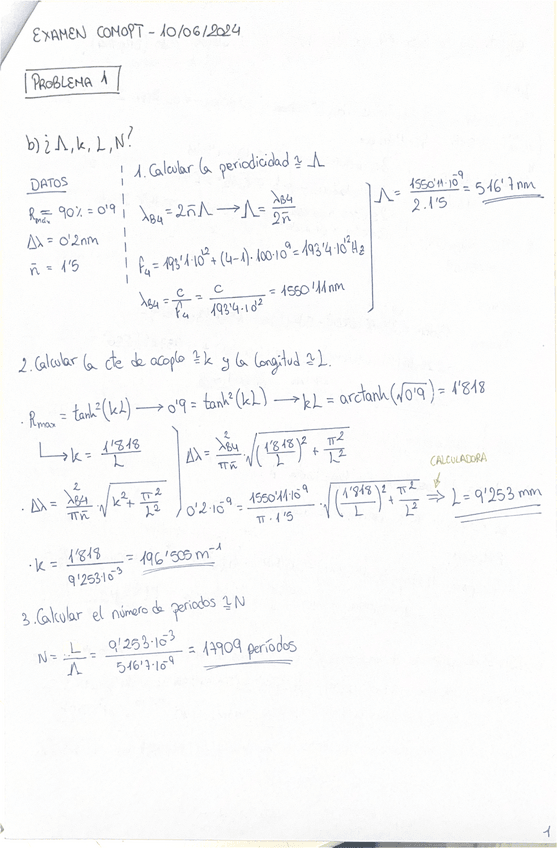 EXAMEN COMOPT - 10/06/2024
PROBLEMA 1
b) ¿ Λ, k, L, N?
DATOS
Rmáx = 90% = 0'9
Δλ = 0'2nm
n̄ = 1'5
1. Calcular la periodicidad ≡ Λ
λB4 = 2n̄Λ → Λ = λB4 / 2n̄
f4 = 193'1·10^12 + (4-1)·100·10^9 = 193'4·10^12 Hz
λB4 = c / f4 = c / 193'4·10^12 = 1550'11nm
Λ = 1550'11·10^-9 / 2·1'5 = 516'7nm
2. Calcular la cte de acoplo ≡ k y la longitud ≡ L.
· Rmax = tanh²(kL) → 0'9 = tanh²(kL) → kL = arctanh(√0'9) = 1'818
↳ k = 1'818 / L
· Δλ = λ²B4 / πn̄ · √(k² + π²/L²)
Δλ = λ²B4 / πn̄ · √((1'818/L)² + π²/L²)
CALCULADORA
0'2·10^-9 = 1550'11·10^-9 / π·1'5 · √((1'818/L)² + π²/L²) ⇒ L = 9'253 mm
· k = 1'818 / 9'253·10^-3 = 196'505 m^-1
3. Calcular el número de periodos ≡ N
N = L / Λ = 9'253·10^-3 / 516'7·10^-9 = 17909 períodos
1